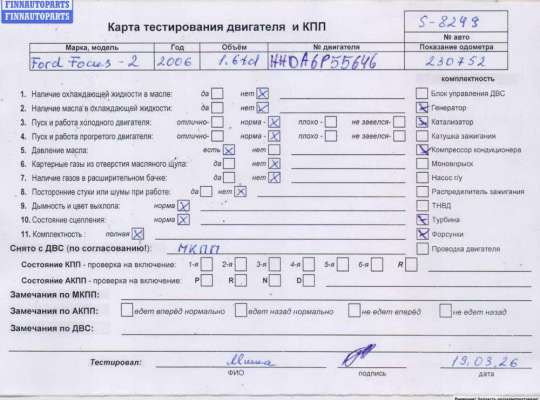 FINNAUTOPARTS
FINNAUTOPARTS
Карта тестирования двигателя и КПП
S-8293
№ авто
Марка, модель Год Объём № двигателя Показание одометра
Ford Focus-2 2006 1.6td HHDA6P55646 230752
комплектность
1. Наличие охлаждающей жидкости в масле: да нет
Блок управления ДВС
2. Наличие масла в охлаждающей жидкости: да нет
Генератор
3. Пуск и работа холодного двигателя: отлично- норма - плохо - не завелся-
Катализатор
4. Пуск и работа прогретого двигателя: отлично- норма - плохо - не завелся-
Катушка зажигания
5. Давление масла: есть нет
Компрессор кондиционера
6. Картерные газы из отверстия масляного щупа: да нет
Моновпрыск
7. Наличие газов в расширительном бачке: да нет
Насос г/у
8. Посторонние стуки или шумы при работе: да нет
Распределитель зажигания
9. Дымность и цвет выхлопа: норма
ТНВД
10. Состояние сцепления: норма
Турбина
11. Комплектность : полная
Форсунки
Снято с ДВС (по согласованию!): МКПП
Проводка двигателя
Состояние КПП - проверка на включение: 1-я 2-я 3-я 4-я 5-я 6-я R
Состояние АКПП - проверка на включение: P R N D
Замечания по МКПП:
Замечания по АКПП: едет вперёд нормально едет назад нормально не едет вперёд не едет назад
Замечания по ДВС:
Тестировал: Миша 19.03.26
ФИО подпись дата